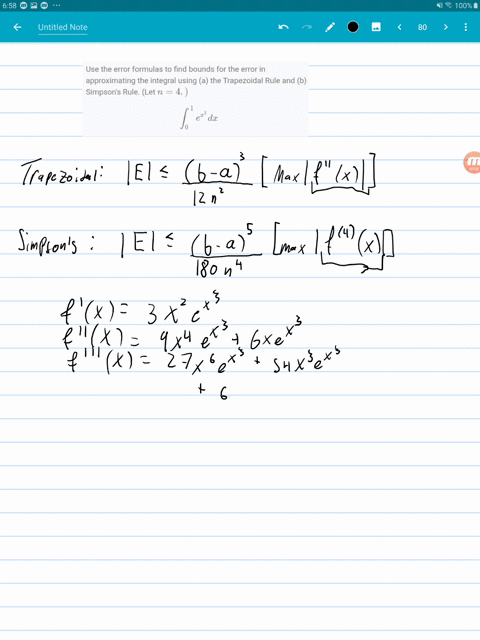 6:58 100%
Untitled Note 80
Use the error formulas to find bounds for the error in
approximating the integral using (a) the Trapezoidal Rule and (b)
Simpson's Rule. (Let n = 4. )
∫₀¹ eˣ³ dx
Trapezoidal: |E| ≤ (b-a)³ / 12n² [Max |f''(x)|]
Simpson's: |E| ≤ (b-a)⁵ / 180n⁴ [max |f⁽⁴⁾(x)|]
f'(x) = 3x² eˣ³
f''(x) = 9x⁴ eˣ³ + 6xeˣ³
f'''(x) = 27x⁶ eˣ³ + 54x³eˣ³
+ 6